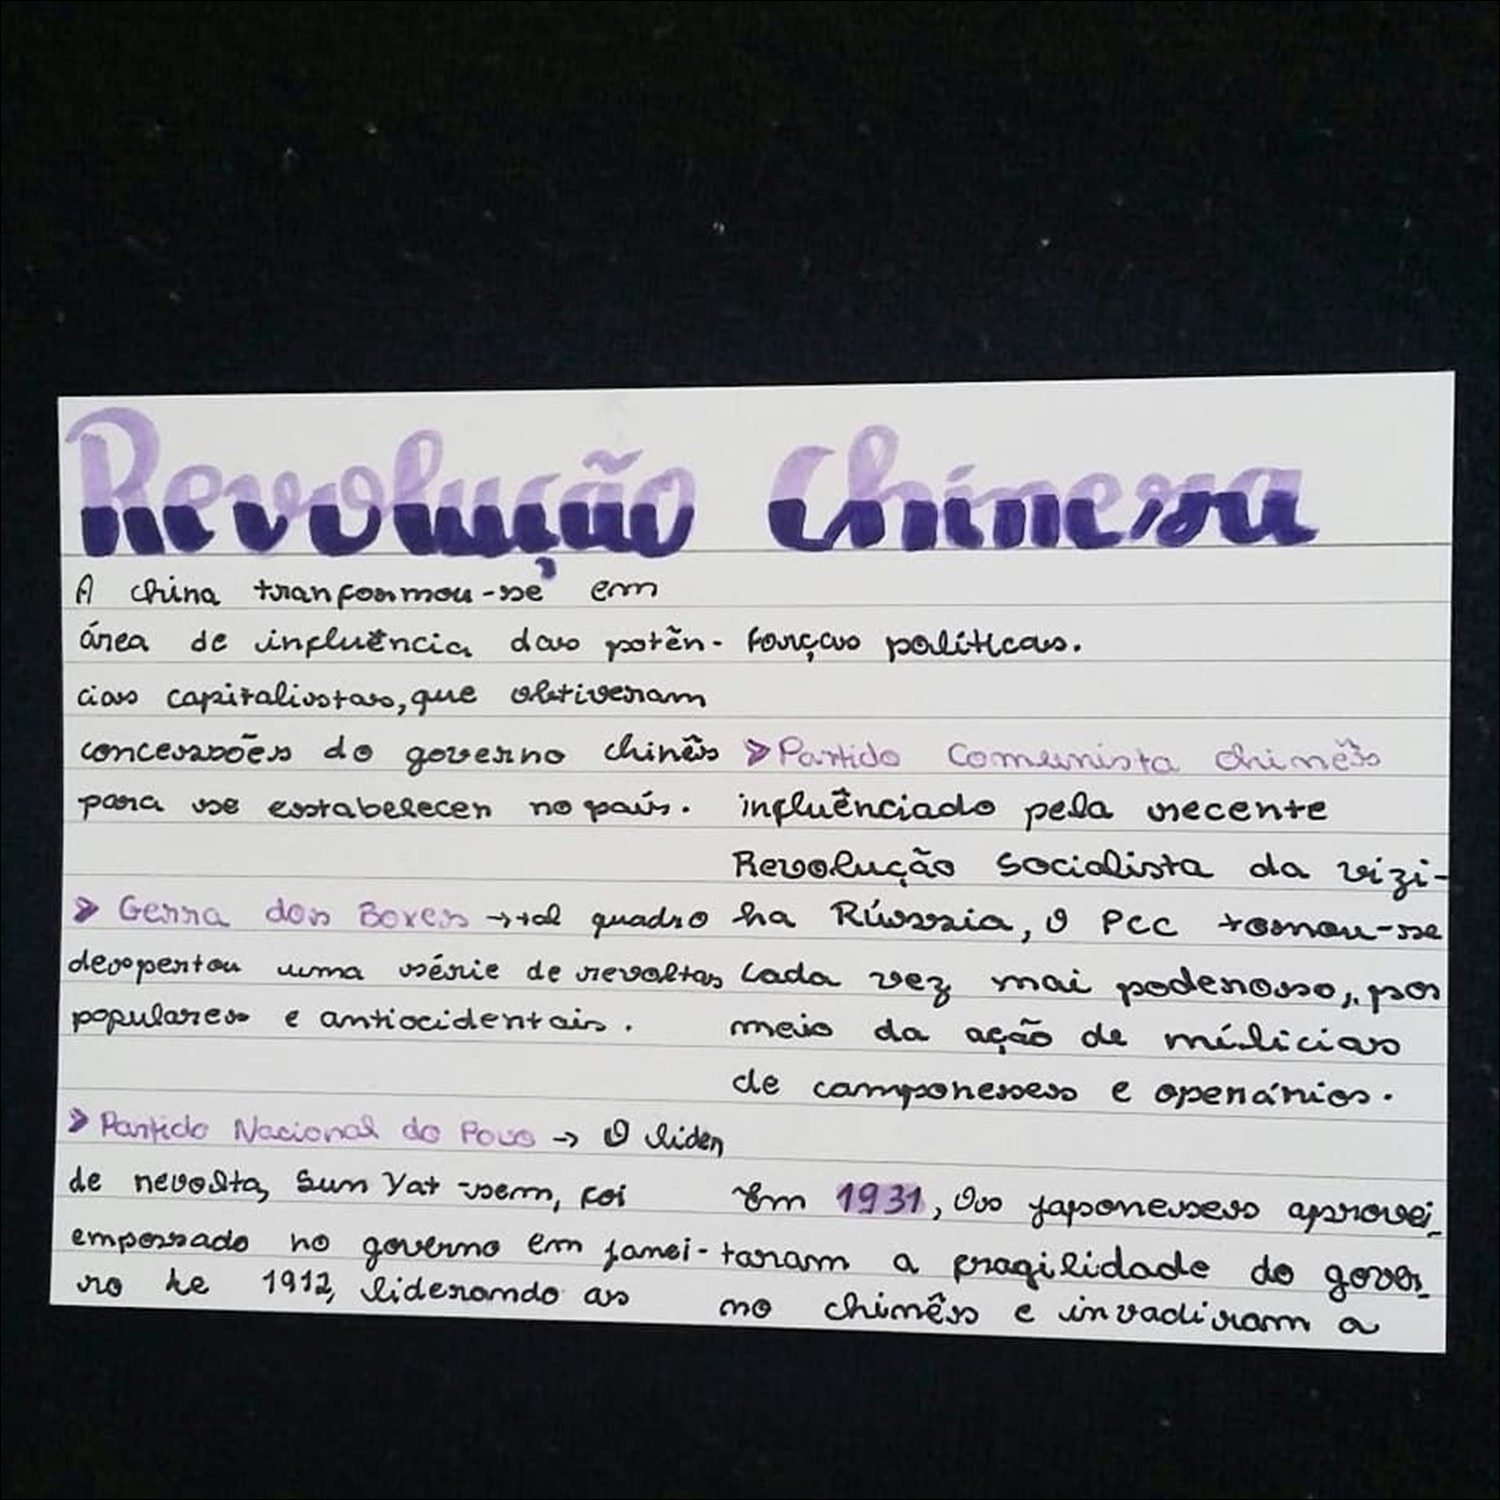 Revolução Chinesa
A china tranformou-se em
área de influência das potên-
cias capitalistas, que obtiveram
concessões do governo chinês
para se estabelecer no país.
» Gerra dos Boxes → tal quadro
despertou uma série de revoltas
populares e antiocidentais.
» Partido Nacional do Povo → O lider
de revolta, Sun Yat-sem, foi
empossado no governo em janei-
ro de 1912, liderando as
forças políticas.
» Partido Comunista chinês
influênciado pela recente
Revolução Socialista da vizi-
ha Rússia, o PCC tornou-se
cada vez mai poderoso, por
meio da ação de milícias
de camponeses e operários.
Em 1931, Os japoneses aprovei-
taram a fragilidade do gover-
no chinês e invadiram a